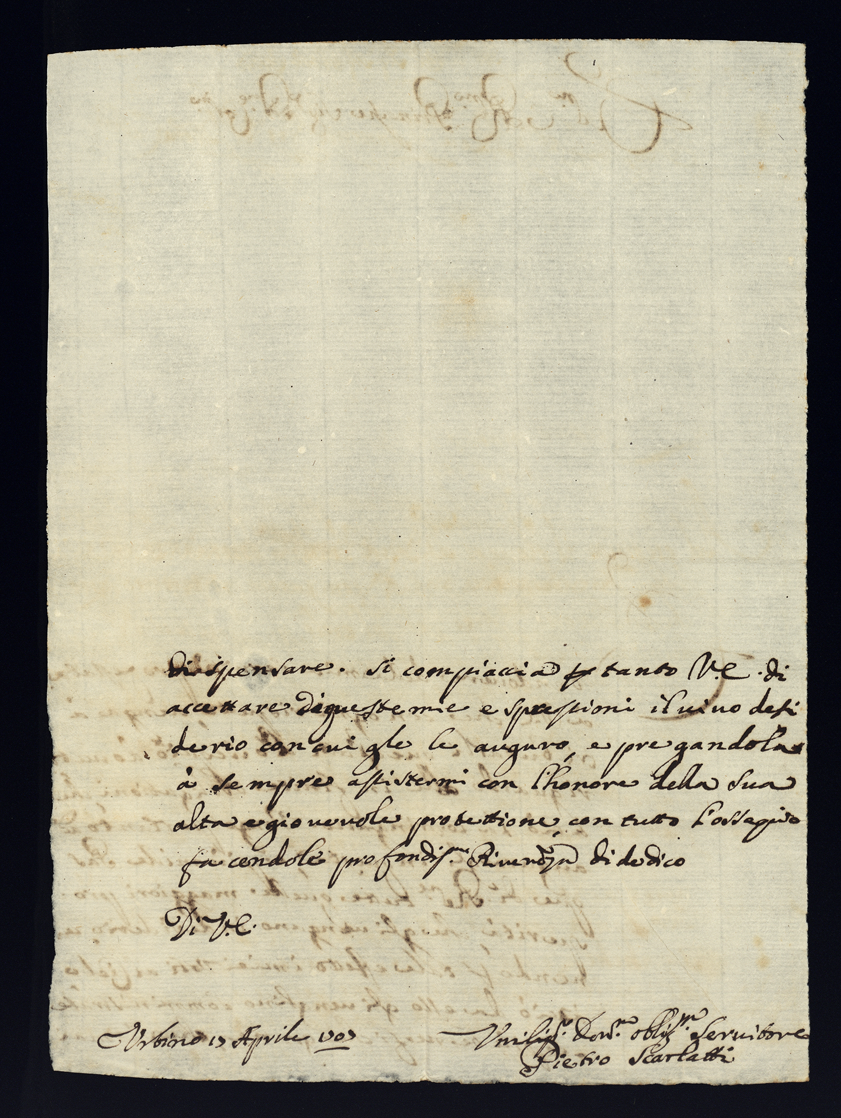 dispensare. Si compiaccia p tanto V.E. di
accettare di queste mie espressioni il vivo desi
derio con cui gle le auguro, e pregandola
à sempre assistermi con l'honore della sua
alta e giovevole protettione con tutto l'ossequio
facendole profondis.ma Riverenza di dedico
Di V.E.
Urbino Aprile
Umilis.o Dev.mo oblig.mo Servitore
Pietro Scarlatti